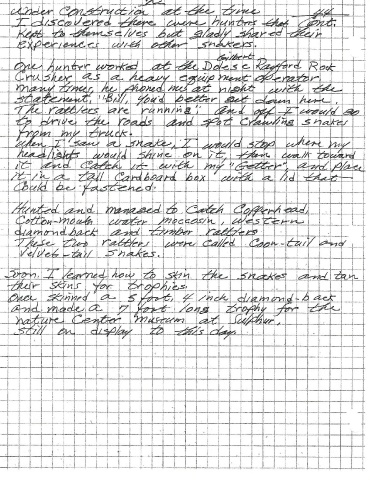 the
under construction at the time 44
I discovered there were hunters that cont.
kept to themselves but gladly shared their
experiences with other snakers.
Gilbert
One hunter worked at the Dolese Rayford Rock
Crusher as a heavy equipment operator
many times, he phoned me at night with the
statement, "Bill, you'd better get down here.
The rattlers are running," and off I would go
to drive the roads and spot crawling snakes
from my truck.
When I saw a snake, I would stop where my
headlights would shine on it, then walk toward
it and catch it with my "Getter", and place
it in a tall cardboard box with a lid that
could be fastened.
Hunted and managed to catch Copperhead,
Cotton-mouth water moccasin, western
diamondback and timber rattlers
These two rattlers were called Coon-tail and
Velvet-tail snakes.
Soon I learned how to skin the snakes and tan
their skins for trophies
Once skinned a 5 foot, 4 inch diamond-back
and made a 7 foot long trophy for the
nature Center Museum at Sulphur,
still on display to this day.